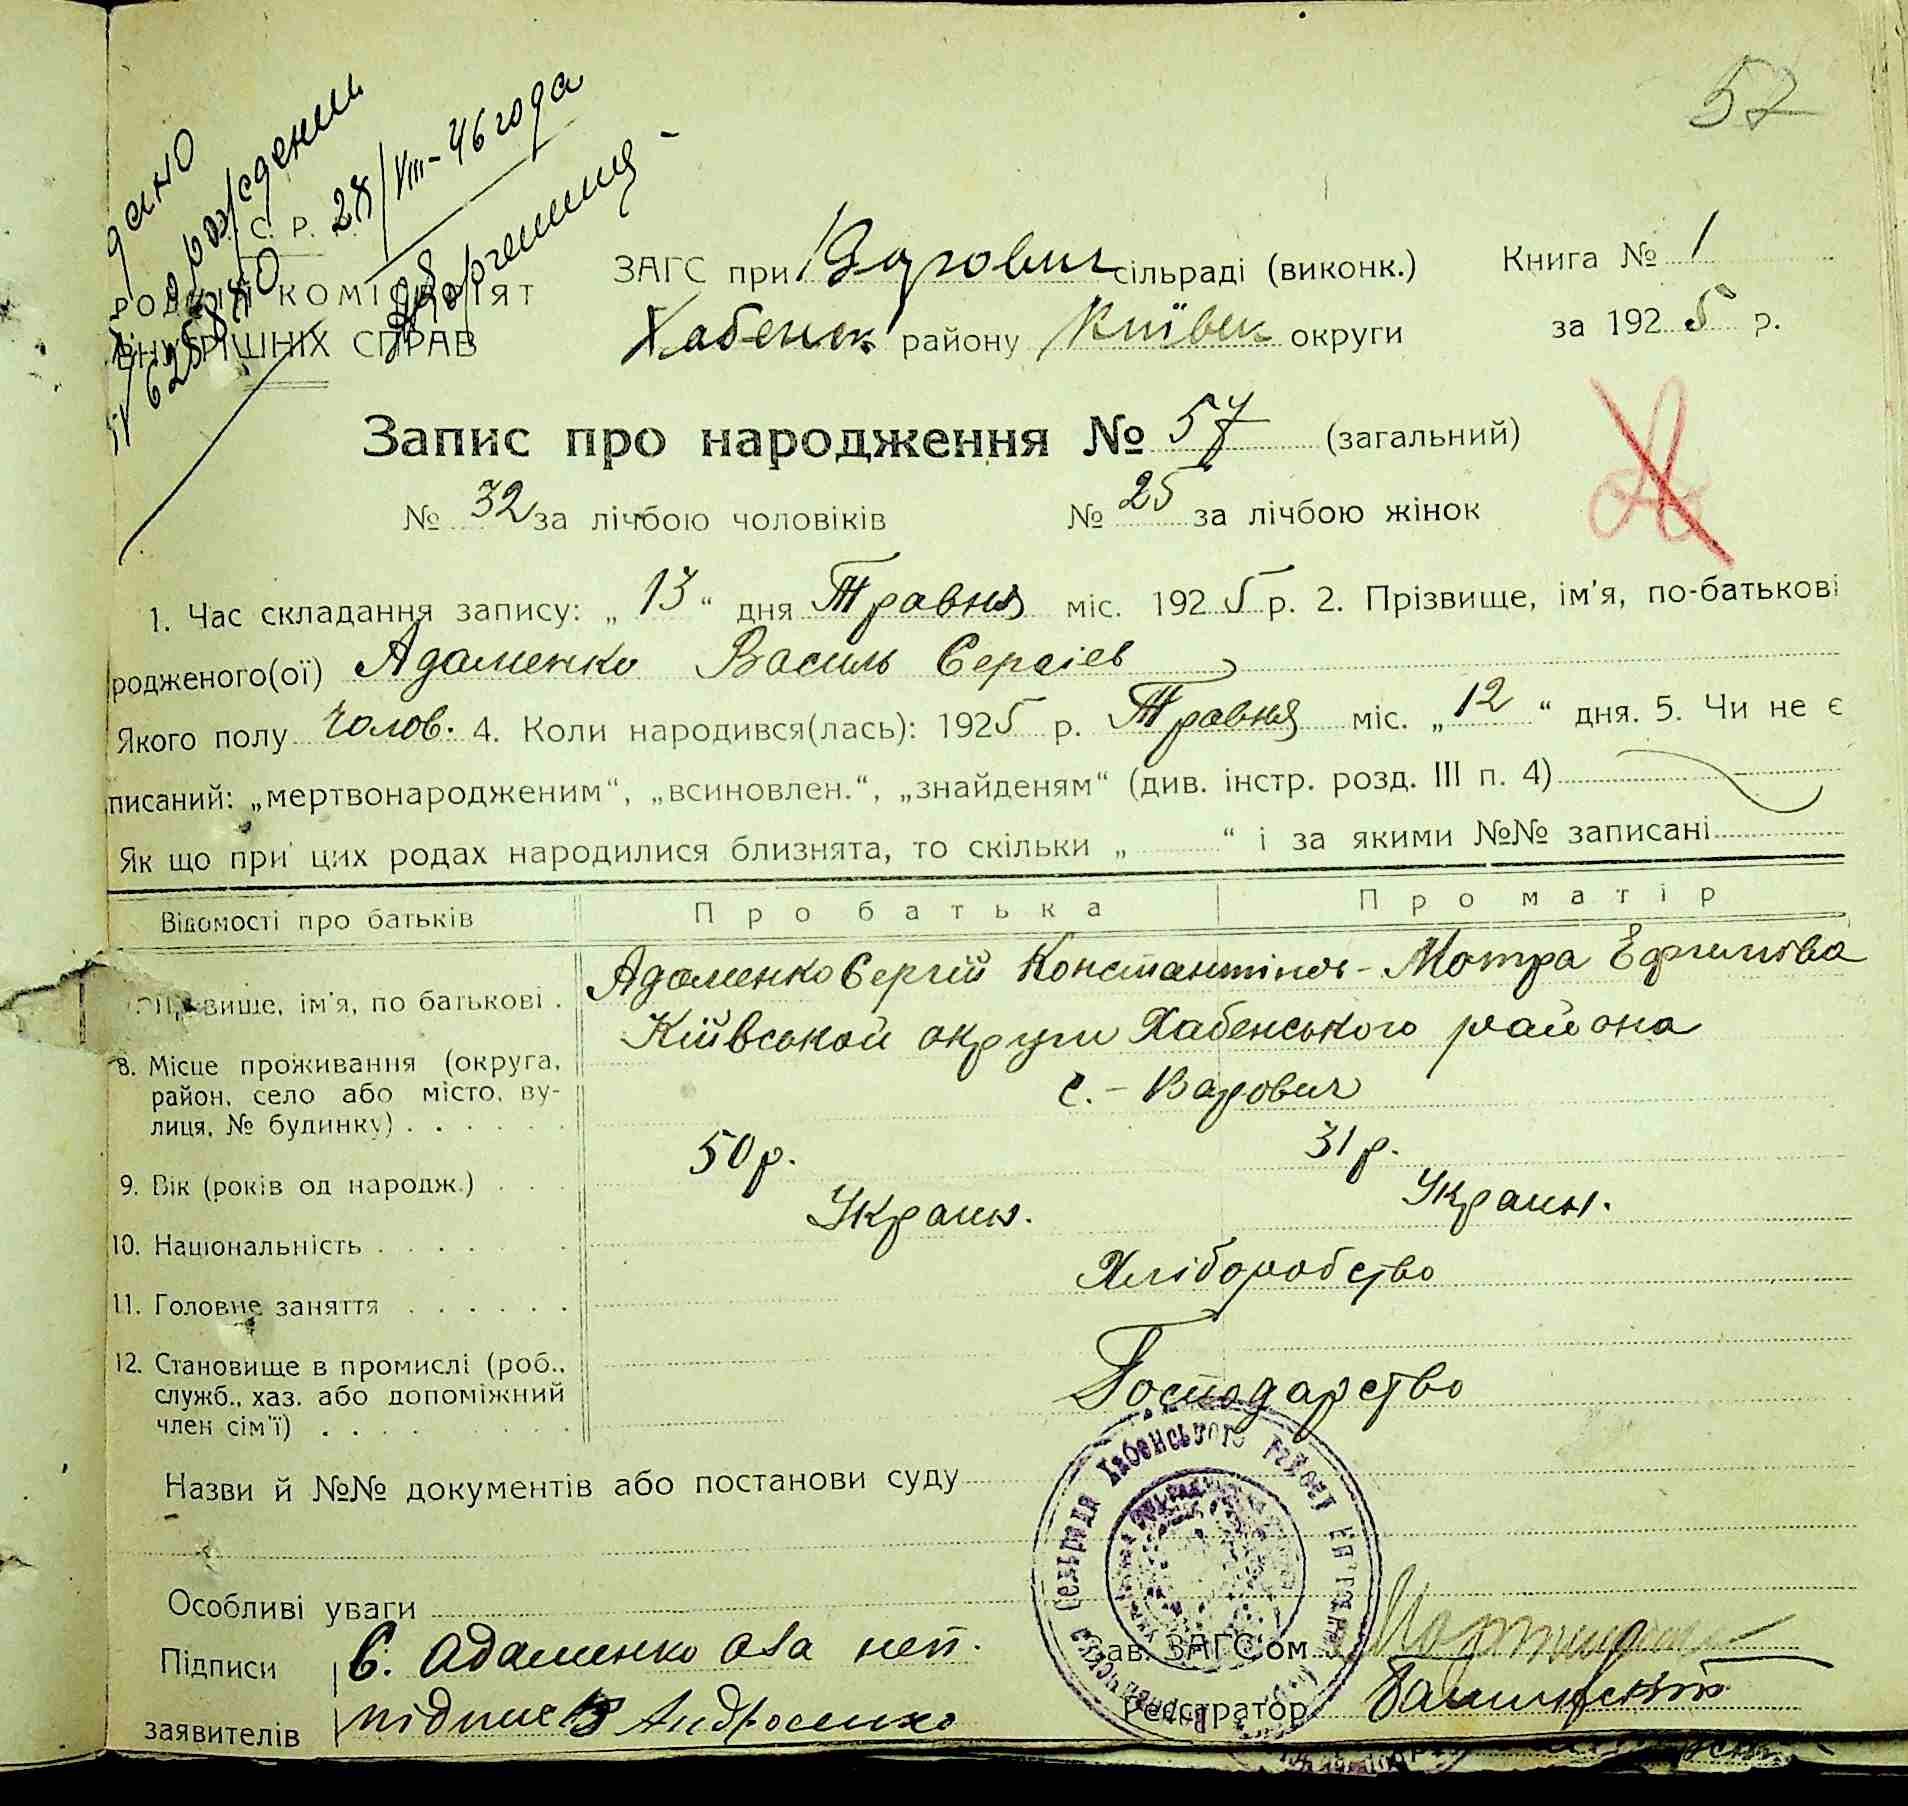 57
дано
рождении
28/VIII-46 года
С. Р. Р.
РОДНІЙ КОМІСАРІЯТ
ВНУТРІШНІХ СПРАВ
ЗАГС при Варович сільраді (виконк.) Книга № 1
Хабенск. району Київськ округи за 1925 р.
Запис про народження № 57 (загальний)
№ 32 за лічбою чоловіків № 25 за лічбою жінок
1. Час складання запису: „13“ дня Травня міс. 1925 р. 2. Прізвище, ім'я, по-батькові
родженого(ої) Адаменко Василь Сергіев
Якого полу чолов. 4. Коли народився(лась): 1925 р. Травня міс. „12“ дня. 5. Чи не є
писаний: „мертвонародженим“, „всиновлен.“, „знайденям“ (див. інстр. розд. III п. 4)
Як що при цих родах народилися близнята, то скільки „ “ і за якими №№ записані
Відомості про батьків Про батька Про матір
Прізвище, ім'я, по батькові . Адаменко Сергій Константінов- Мотра Ефимівa
Київськой округи Хабенського района
8. Місце проживання (округа,
район, село або місто, ву-
лиця, № будинку) с. - Варович
9. Вік (років од народж.) 50 р. 31 р.
10. Національність Украин. Украин.
11. Головне заняття Хліборобство
12. Становище в промислі (роб.,
служб., хаз. або допоміжний
член сім'ї) Господарство
Назви й №№ документів або постанови суду
Особливі уваги
Підписи С. Адаменко a за неп. Зав. ЗАГС'ом
заявителів підпис Андросенко Реєстратор
Сельрада Хабенського району